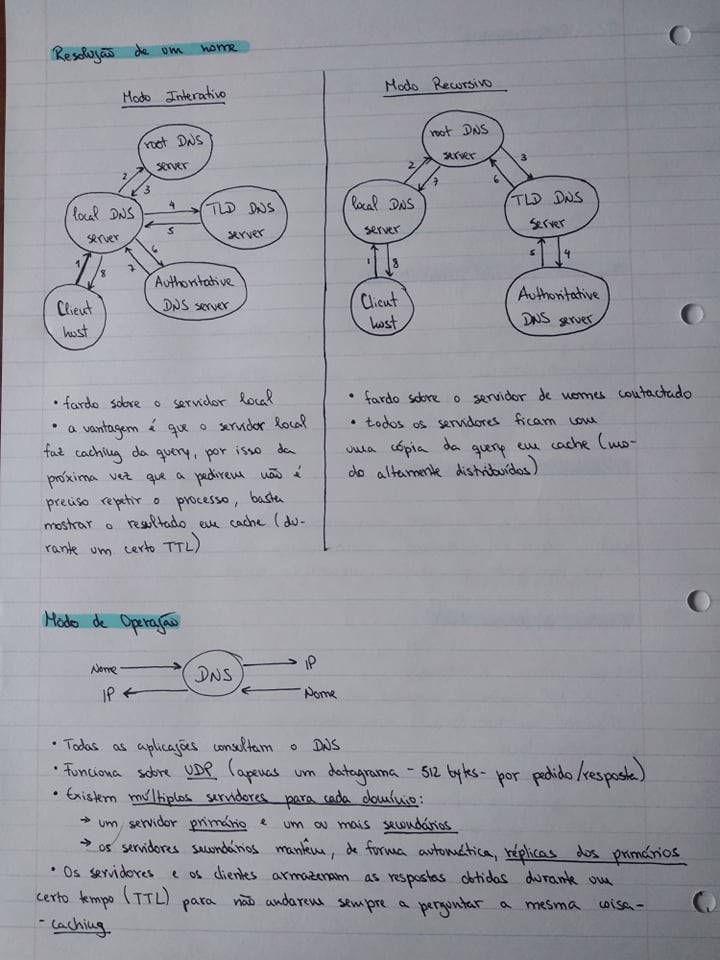 Resolução de um nome
Modo Interativo
root DNS
server
2
3
local DNS
server
4
5
TLD DNS
server
6
7
Authoritative
DNS server
1
8
Client
host
• fardo sobre o servidor local
• a vantagem é que o servidor local
faz caching da query, por isso da
próxima vez que a pedirem não é
preciso repetir o processo, basta
mostrar o resultado em cache (du-
rante um certo TTL)
Modo Recursivo
root DNS
server
2
7
3
6
local DNS
server
TLD DNS
server
1
8
5
4
Client
host
Authoritative
DNS server
• fardo sobre o servidor de nomes contactado
• todos os servidores ficam com
uma cópia da query em cache (mo-
do altamente distribuídos)
Modo de Operação
Nome
DNS
IP
IP
Nome
• Todas as aplicações consultam o DNS
• Funciona sobre UDP (apenas um datagrama - 512 bytes - por pedido/resposta)
• Existem múltiplos servidores para cada domínio:
→ um servidor primário e um ou mais secundários
→ os servidores secundários mantêm, de forma automática, réplicas dos primários
• Os servidores e os clientes armazenam as respostas obtidas durante um
certo tempo (TTL) para não andarem sempre a perguntar a mesma coisa -
- caching